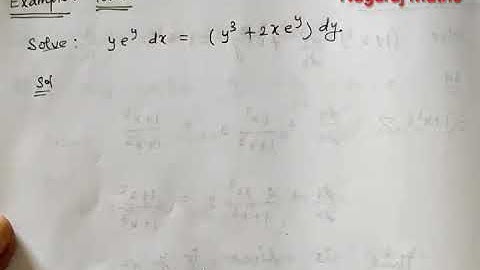 Example:
Solve: y e^y dx = (y^3 + 2x e^y) dy.
Sol